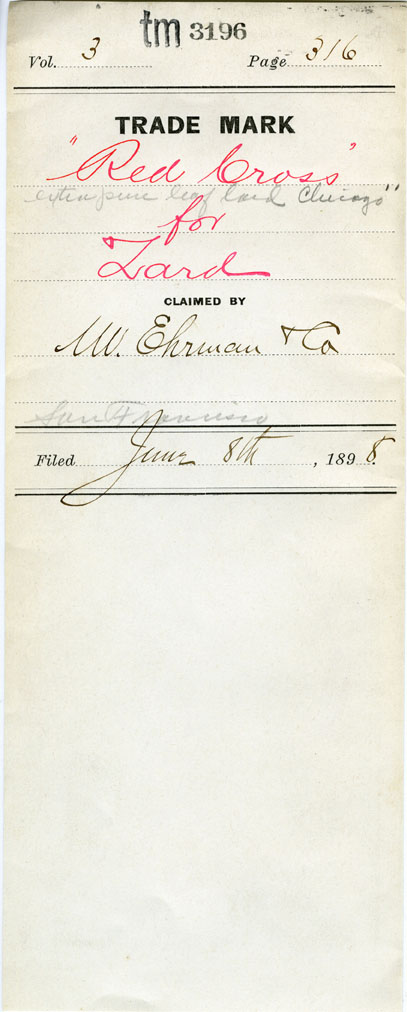 tm 3196
Vol. 3 Page 316
TRADE MARK
"Red Cross"
extra pure leaf lard Chicago"
for
Lard
CLAIMED BY
M. Ehrman & Co
San Francisco
Filed June 8th, 1898.